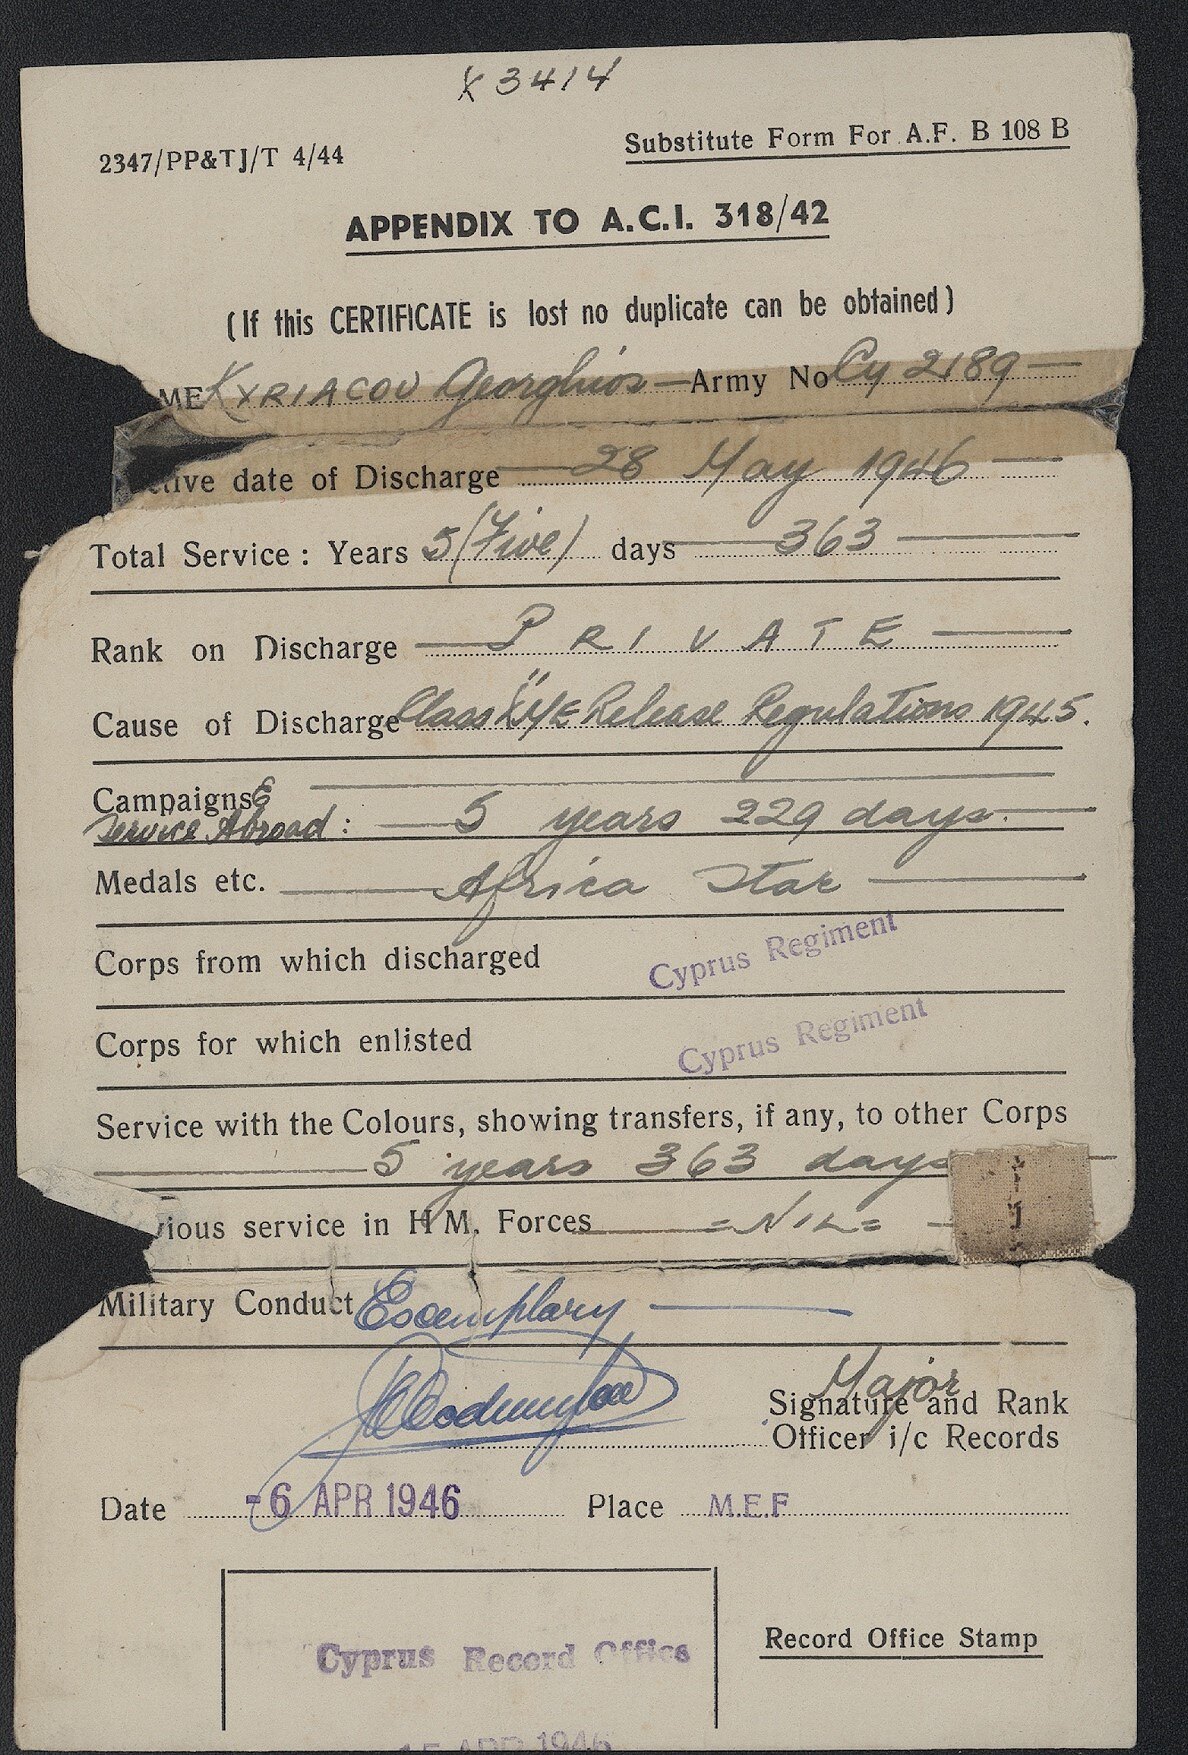 X 3414
2347/PP&TJ/T 4/44
Substitute Form For A.F. B 108 B
APPENDIX TO A.C.I. 318/42
(If this CERTIFICATE is lost no duplicate can be obtained)
ME KYRIACOU Georghios — Army No Cy 2189 —
ctive date of Discharge — 28 May 1946 —
Total Service : Years 5 (Five) days — 363 —
Rank on Discharge — PRIVATE —
Cause of Discharge Class Release Regulations 1945.
Campaigns &
Service Abroad : — 5 years 229 days. —
Medals etc. — Africa Star —
Corps from which discharged Cyprus Regiment
Corps for which enlisted Cyprus Regiment
Service with the Colours, showing transfers, if any, to other Corps
— 5 years 363 days
vious service in H.M. Forces = NIL = —
Military Conduct Excemplary —
Major
Signature and Rank
Officer i/c Records
Date -6 APR 1946 Place M.E.F
Cyprus Record Office
Record Office Stamp
15 APR 1946